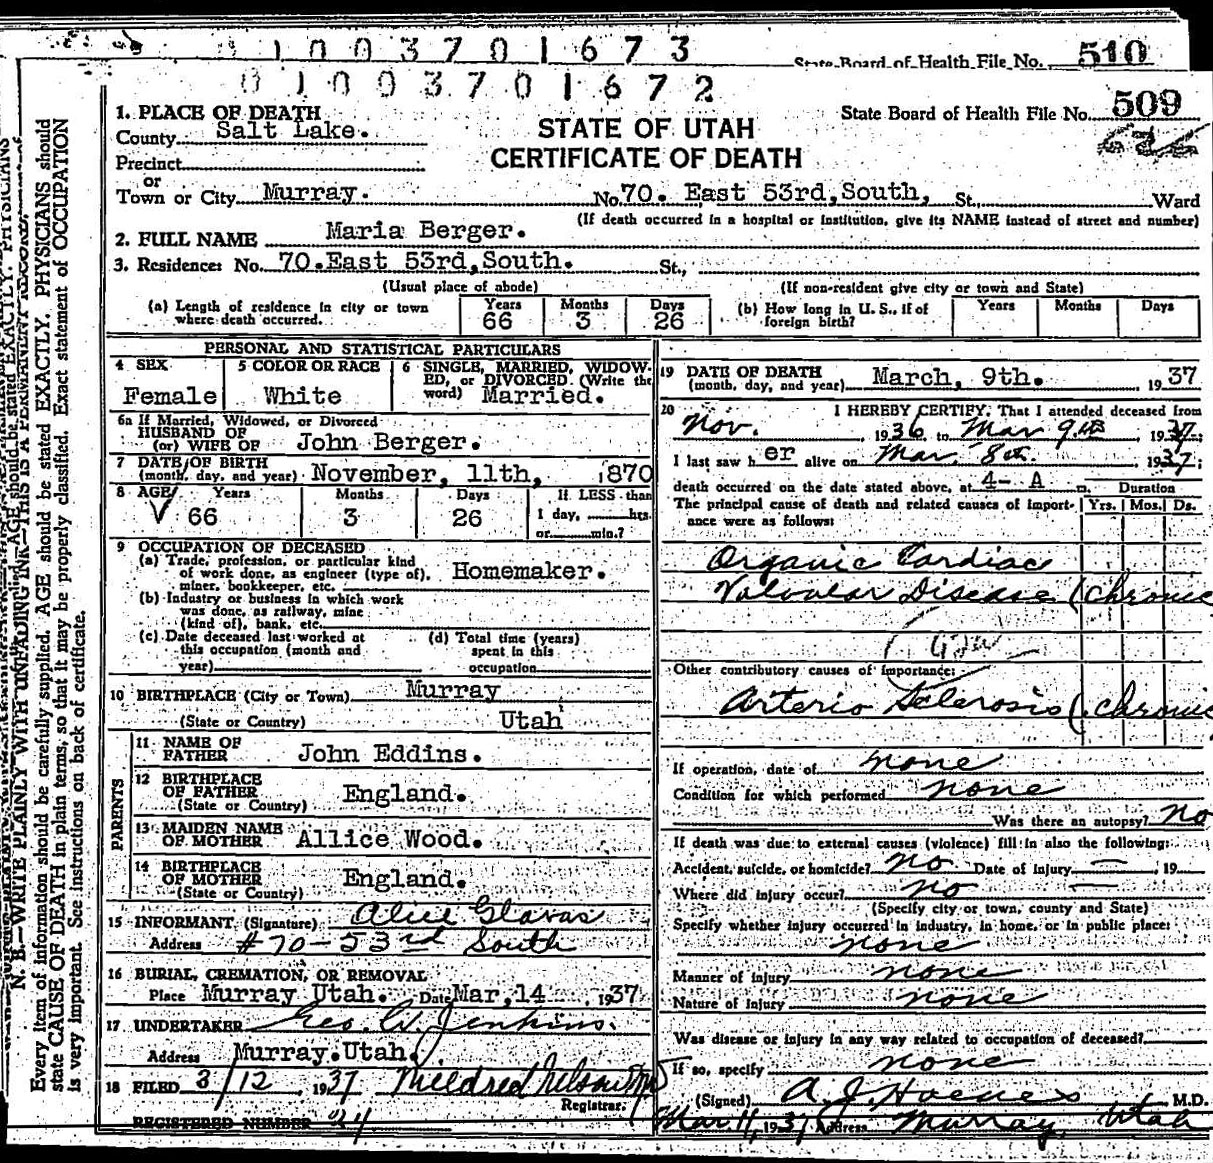 0 1 0 0 3 7 0 1 6 7 3
State Board of Health File No. 510
0 1 0 0 3 7 0 1 6 7 2
State Board of Health File No. 509
1. PLACE OF DEATH
County Salt Lake.
STATE OF UTAH
CERTIFICATE OF DEATH
Precinct
or
Town or City Murray. No. 70. East 53rd, South, St. Ward
(If death occurred in a hospital or institution, give its NAME instead of street and number)
2. FULL NAME Maria Berger.
3. Residence: No. 70. East 53rd, South. St.,
(Usual place of abode) (If non-resident give city or town and State)
(a) Length of residence in city or town where death occurred. Years 66 Months 3 Days 26
(b) How long in U. S., if of foreign birth? Years Months Days
PERSONAL AND STATISTICAL PARTICULARS
4 SEX Female
5 COLOR OR RACE White
6 SINGLE, MARRIED, WIDOWED, or DIVORCED (Write the word) Married.
6a If Married, Widowed, or Divorced
HUSBAND OF
(or) WIFE OF John Berger.
7 DATE OF BIRTH
(month, day, and year) November, 11th, 1870
8 AGE Years 66 Months 3 Days 26
If LESS than
1 day, hrs.
or min.?
9 OCCUPATION OF DECEASED
(a) Trade, profession, or particular kind
of work done, as engineer (type of),
miner, bookkeeper, etc. Homemaker.
(b) Industry or business in which work
was done, as railway, mine
(kind of), bank, etc.
(c) Date deceased last worked at
this occupation (month and
year)
(d) Total time (years)
spent in this
occupation
10 BIRTHPLACE (City or Town) Murray
(State or Country) Utah
PARENTS
11 NAME OF
FATHER John Eddins.
12 BIRTHPLACE
OF FATHER England.
(State or Country)
13 MAIDEN NAME
OF MOTHER Allice Wood.
14 BIRTHPLACE
OF MOTHER England.
(State or Country)
15 INFORMANT (Signature) Alice Glavas
Address #70-53rd South
16 BURIAL, CREMATION, OR REMOVAL
Place Murray Utah. Date Mar, 14 1937
17 UNDERTAKER Geo. W. Jenkins.
Address Murray. Utah.
18 FILED 3/12 1937 Mildred Nelson
Registrar.
REGISTERED NUMBER 24
19 DATE OF DEATH
(month, day, and year) March, 9th. 1937
20 I HEREBY CERTIFY, That I attended deceased from
Nov. 1936 to Mar 9th 1937;
I last saw h er alive on Mar. 8th 1937;
death occurred on the date stated above, at 4- A m. Duration
The principal cause of death and related causes of importance were as follows: Yrs. Mos. Ds.
Organic Cardiac
Valvular Disease (chronic
Other contributory causes of importance:
Arterio Sclerosis (chronic
If operation, date of none
Condition for which performed none
Was there an autopsy? no
If death was due to external causes (violence) fill in also the following:
Accident, suicide, or homicide? no Date of injury — 19
Where did injury occur? no —
(Specify city or town, county and State)
Specify whether injury occurred in industry, in home, or in public place:
none
Manner of injury none
Nature of injury none
Was disease or injury in any way related to occupation of deceased?
If so, specify none
(Signed) A. J. M.D.
Mar. 11, 1937 Address Murray, Utah
N. B.—WRITE PLAINLY WITH UNFADING INK—THIS IS A PERMANENT RECORD.
Every item of information should be carefully supplied. AGE should be stated EXACTLY. PHYSICIANS should
state CAUSE OF DEATH in plain terms, so that it may be properly classified. Exact statement of OCCUPATION
is very important. See instructions on back of certificate.